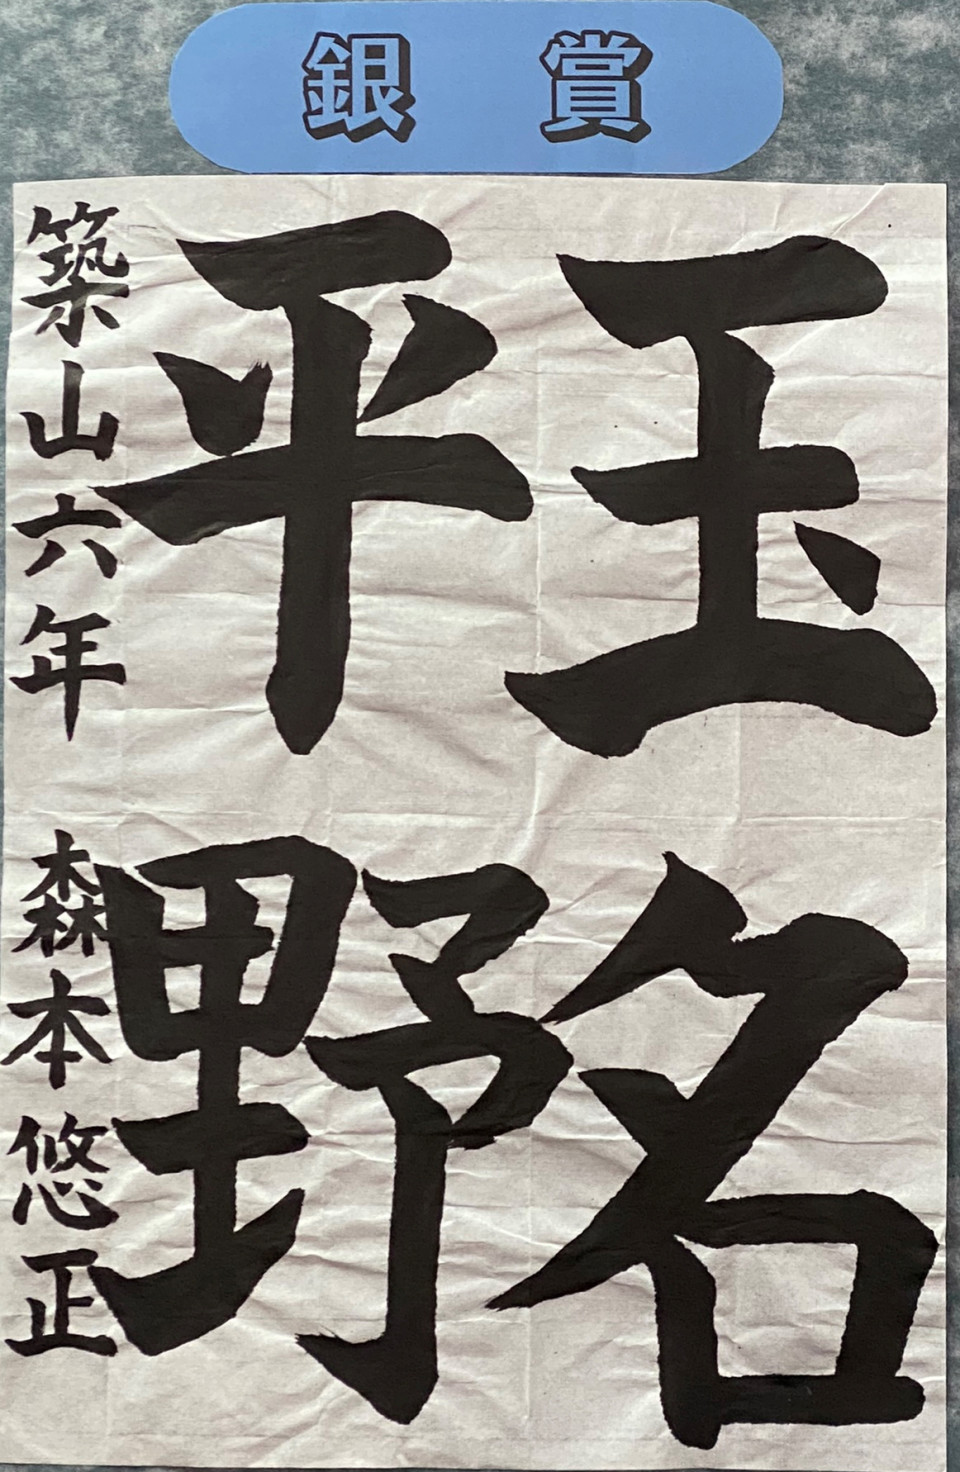 銀賞
玉名
平野
築山六年 森本悠正